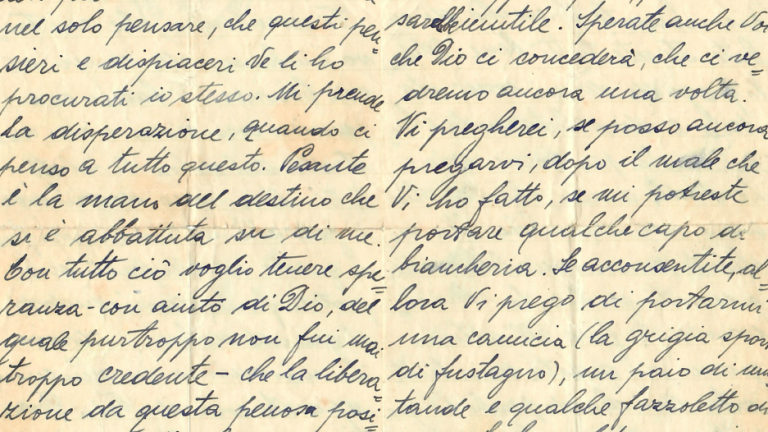 nel solo pensare, che questi pen=
sieri e dispiaceri Ve li ho
procurati io stesso. Mi prende
la disperazione, quando ci
penso a tutto questo. Pesante
è la mano del destino che
si è abbattuta su di me.
Con tutto ciò voglio tenere spe=
ranza - con aiuto di Dio, del
quale purtroppo non fui mai
troppo credente - che la libera=
zione da questa penosa posi=
sarebbe inutile. Sperate anche Voi
che Dio ci concederà, che ci ve=
dremo ancora una volta.
Vi pregherei, se posso ancora
pregarvi, dopo il male che
Vi ho fatto, se mi potreste
portare qualche capo di
biancheria. Se acconsentite, al=
lora Vi prego di portarmi
una camicia (la grigia spor
di fustagno), un paio di mu
tande e qualche fazzoletto di